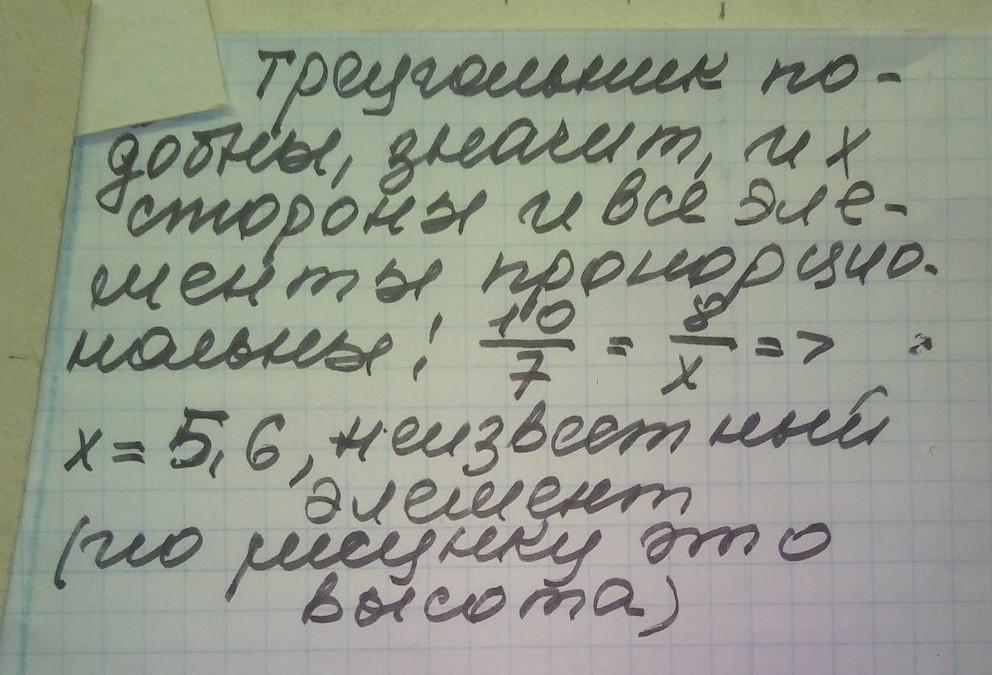 Треугольник по-
добны, значит, их
стороны и все эле-
менты пропорцио-
нальны! 10/7 = 8/x =>
x = 5,6, неизвестный
элемент
(по рисунку это
высота)